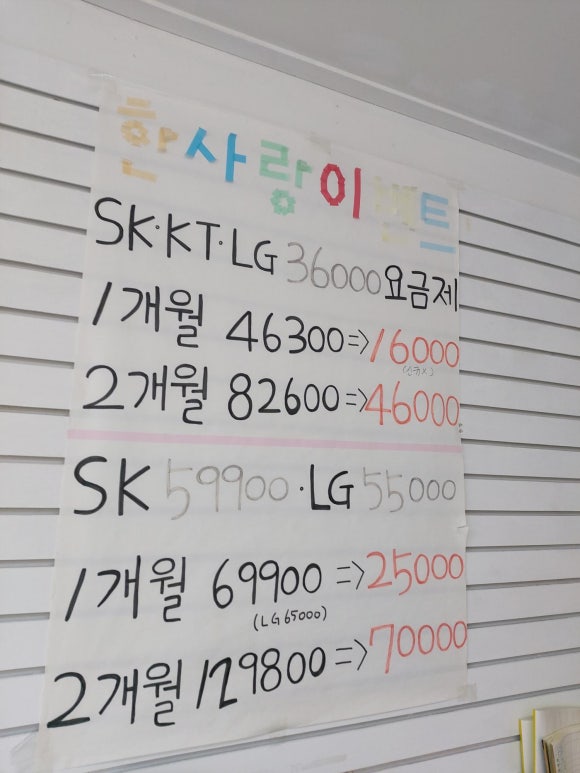 한사랑이벤트
SK·KT·LG 36000요금제
1개월 46300=>16000
2개월 82600=>46000
SK 59900·LG 55000
1개월 69900=>25000
(LG 65000)
2개월 129800=>70000